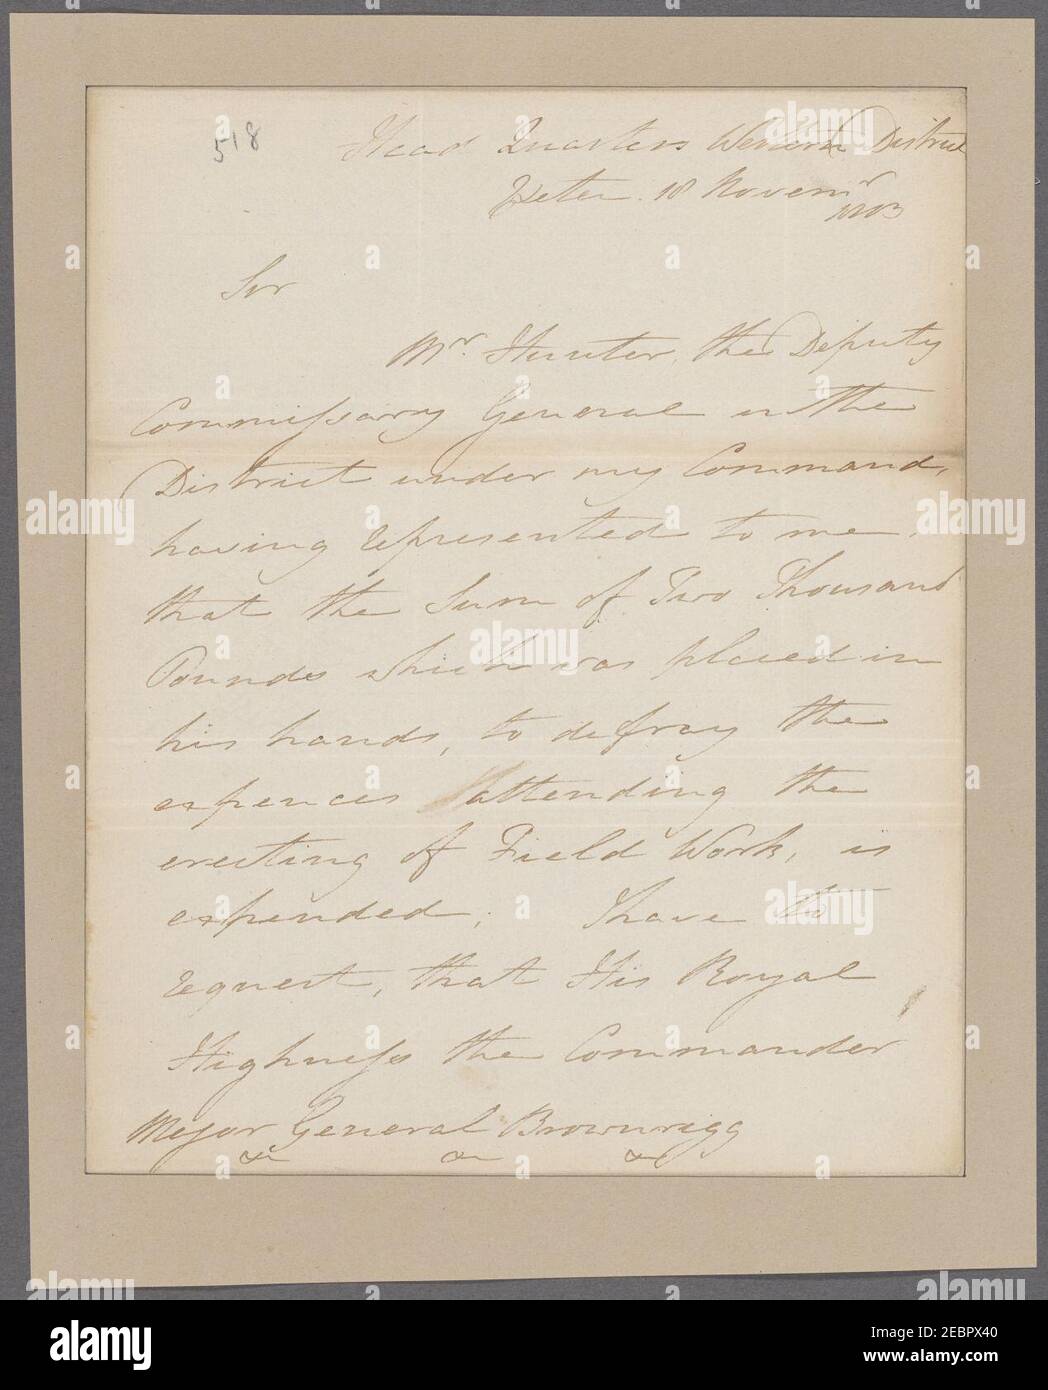 518
Head Quarters Western District
Exeter. 18 Novemr
1803
Sir
Mr. Hunter, the Deputy
Commissary General in the
District under my Command,
having represented to me,
that the Sum of Two Thousand
Pounds which was placed in
his hands, to defray the
expences attending the
erecting of Field Work, is
expended; I have to
request, that His Royal
Highness the Commander
Major General Brownrigg
&c &c &c
alamy
Image ID: 2EBPX40
www.alamy.com